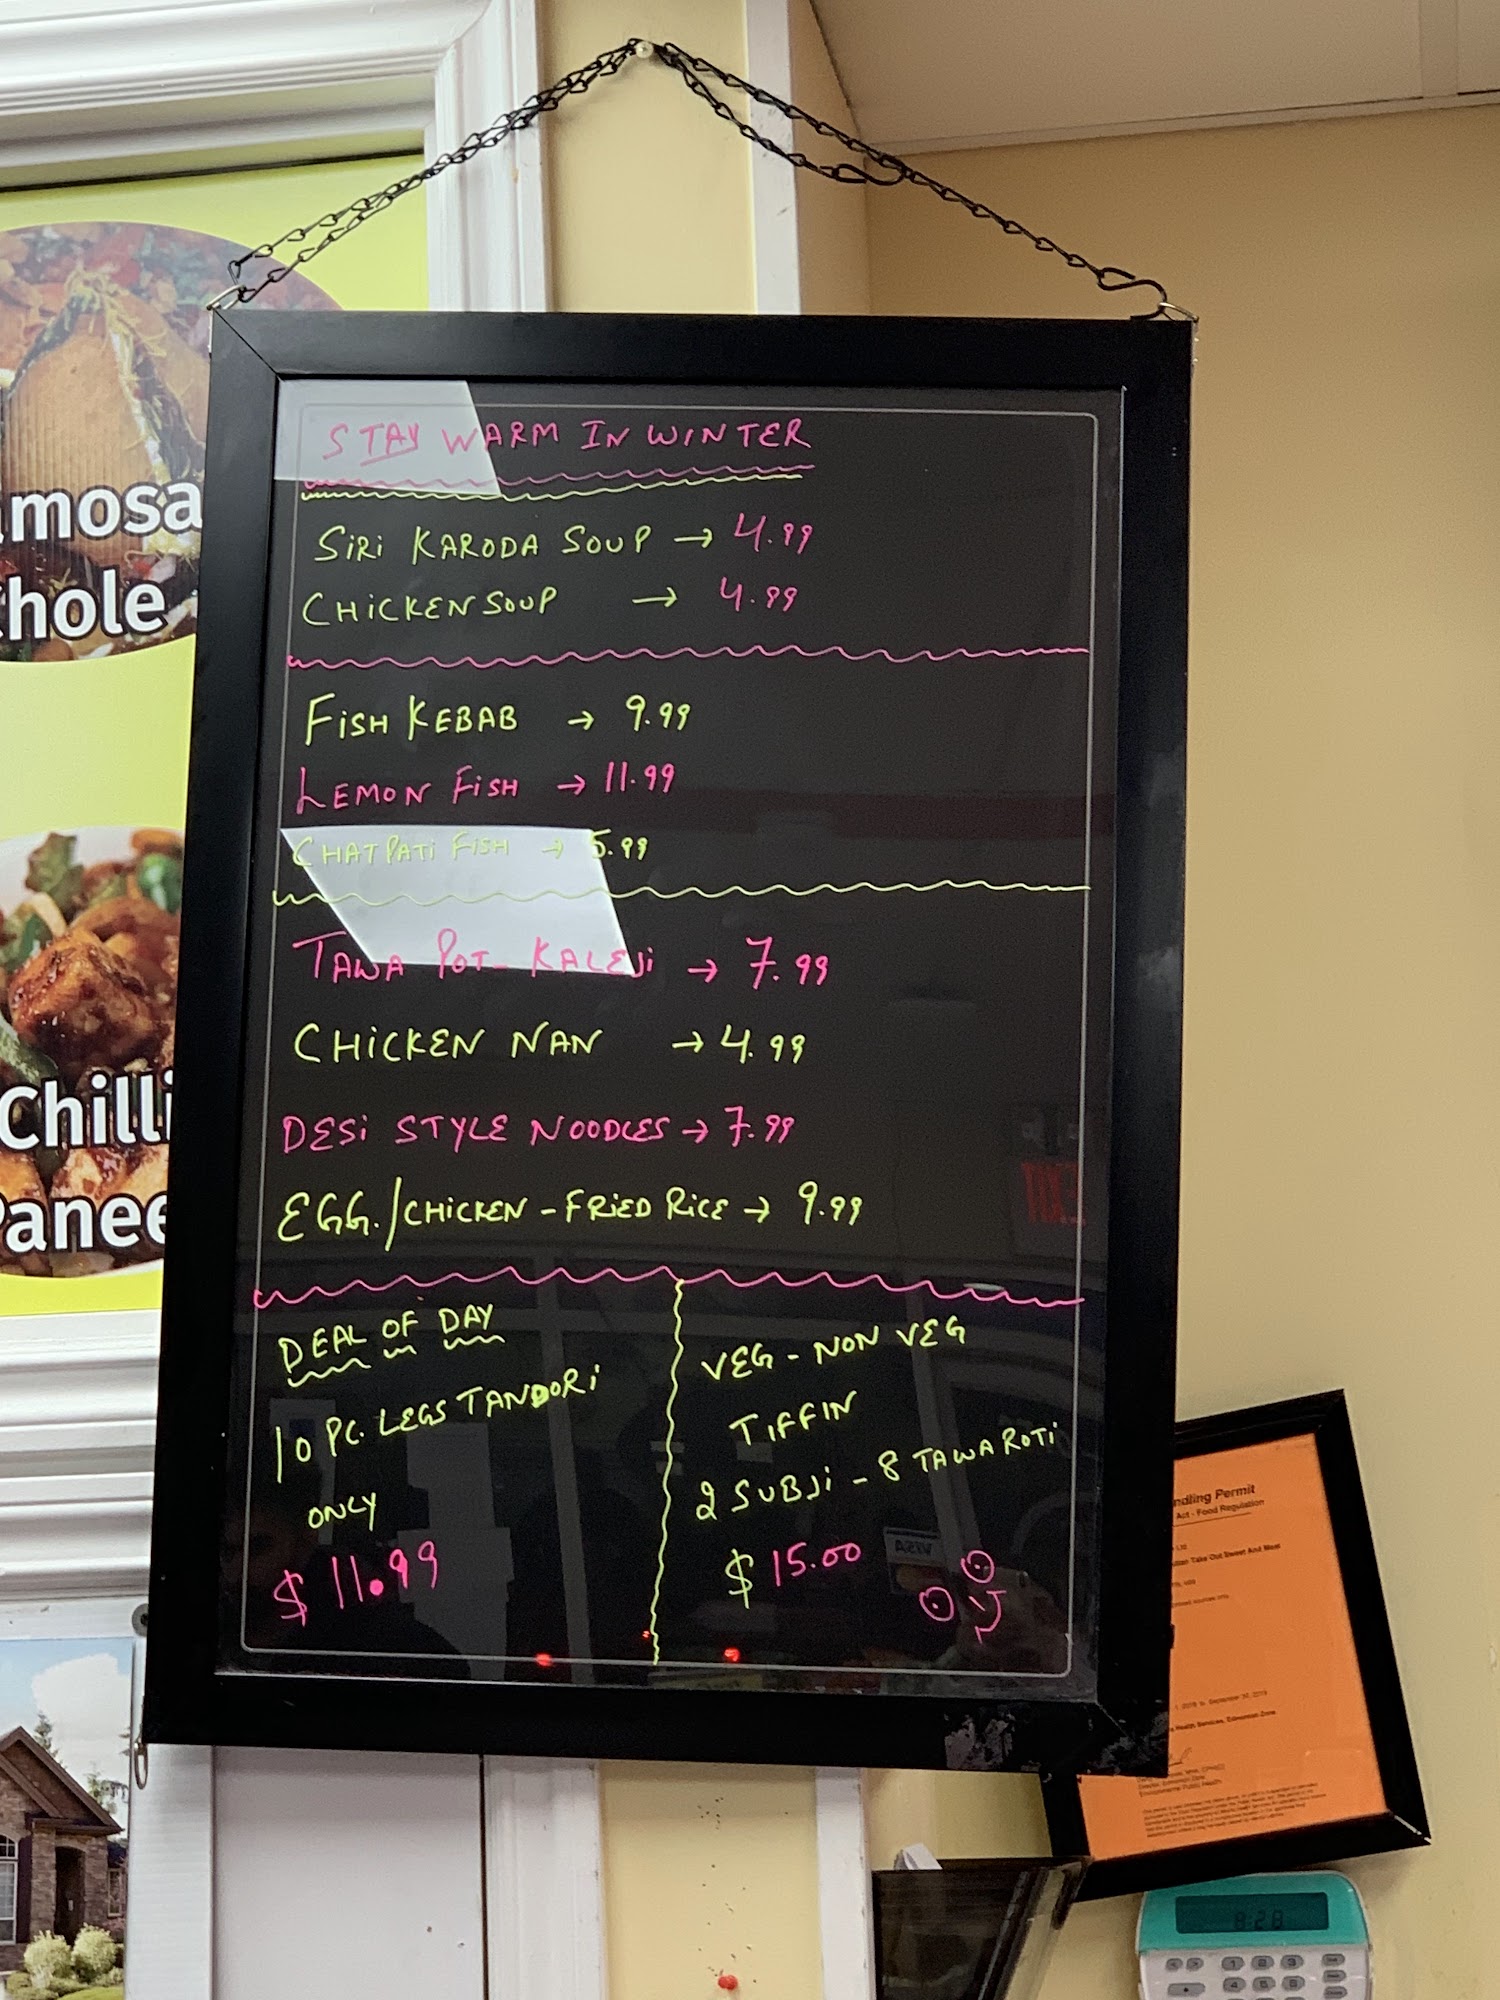 STAY WARM IN WINTER
SIRI KARODA SOUP → 4.99
CHICKEN SOUP → 4.99
FISH KEBAB → 9.99
LEMON FISH → 11.99
CHATPATI FISH → 5.99
TAWA POT- KALEJI → 7.99
CHICKEN NAN → 4.99
DESI STYLE NOODLES → 7.99
EGG./CHICKEN - FRIED RICE → 9.99
DEAL OF DAY
10 PC. LEGS TANDORI
ONLY
$ 11.99
VEG - NON VEG
TIFFIN
2 SUBJI - 8 TAWA ROTI
$ 15.00
mosa
hole
Chilli
anee
ndling Permit
Act - Food Regulation
Take Out Sweet And Meat
Health Services, Edmonton Zone
Environmental Public Health
8:28
EXIT
VISA